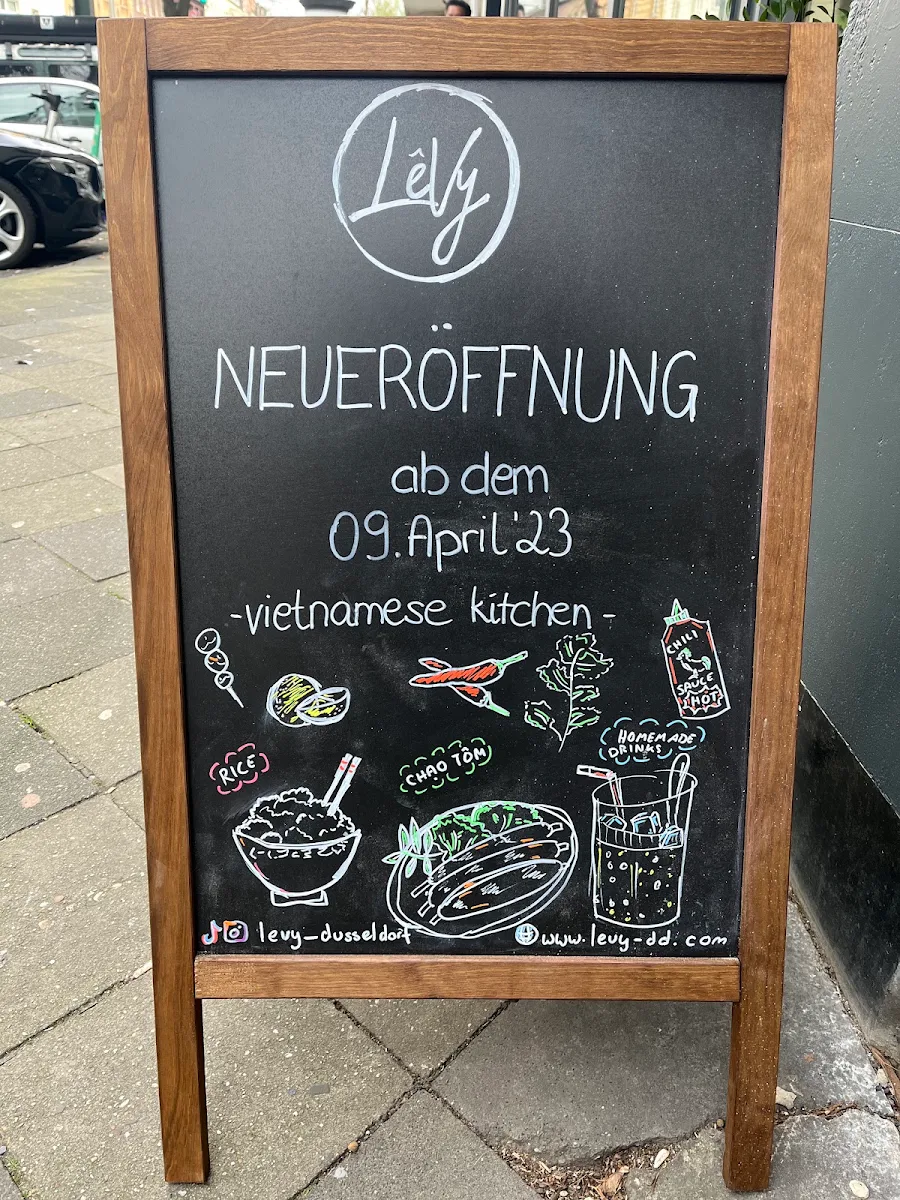 LêVy
NEUERÖFFNUNG
ab dem
09. April '23
-vietnamese kitchen-
CHILI
SAUCE
HOT
RICE
CHAO TÔM
HOMEMADE
DRINKS
levy_dusseldorf
www.levy-dd.com